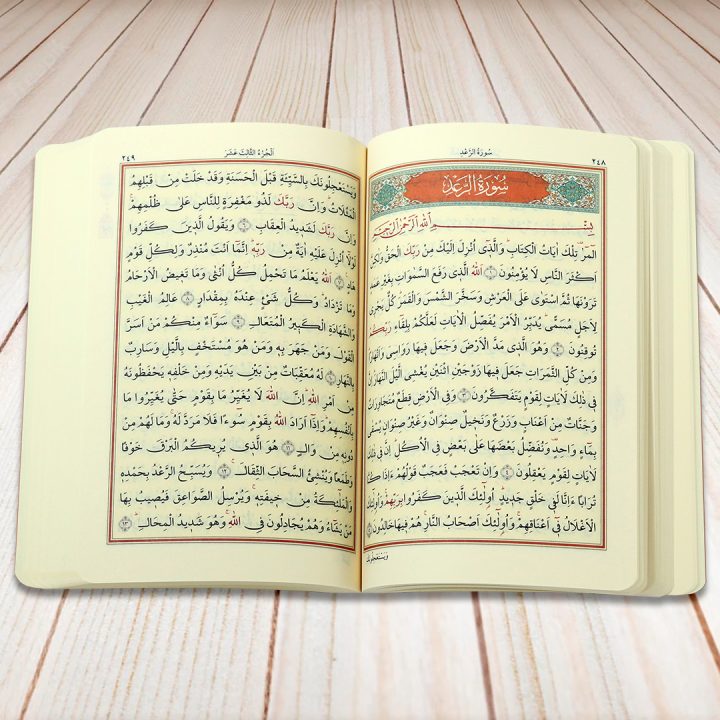 سُورَةُ الرَّعْدِ
٢٤٨
سُورَةُ الرَّعْدِ
بِسْمِ اللّٰهِ الرَّحْمٰنِ الرَّحِيمِ
الٓمٓرٰ تِلْكَ اٰيَاتُ الْكِتَابِ وَالَّذٓى اُنْزِلَ اِلَيْكَ مِنْ رَبِّكَ الْحَقُّ وَلٰكِنَّ
اَكْثَرَ النَّاسِ لَا يُؤْمِنُونَ ﴿١﴾ اَللّٰهُ الَّذٓى رَفَعَ السَّمٰوَاتِ بِغَيْرِ عَمَدٍ
تَرَوْنَهَا ثُمَّ اسْتَوٰى عَلَى الْعَرْشِ وَسَخَّرَ الشَّمْسَ وَالْقَمَرَ كُلٌّ يَجْرٓى
لِاَجَلٍ مُسَمًّى يُدَبِّرُ الْاَمْرَ يُفَصِّلُ الْاٰيَاتِ لَعَلَّكُمْ بِلِقَٓاءِ رَبِّكُمْ
تُوقِنُونَ ﴿٢﴾ وَهُوَ الَّذٓى مَدَّ الْاَرْضَ وَجَعَلَ فٓيهَا رَوَاسِىَ وَاَنْهَارًا
وَمِنْ كُلِّ الثَّمَرَاتِ جَعَلَ فٓيهَا زَوْجَيْنِ اثْنَيْنِ يُغْشِى الَّيْلَ النَّهَارَ اِنَّ
فٓى ذٰلِكَ لَاٰيَاتٍ لِقَوْمٍ يَتَفَكَّرُونَ ﴿٣﴾ وَفِى الْاَرْضِ قِطَعٌ مُتَجَاوِرَاتٌ
وَجَنَّاتٌ مِنْ اَعْنَابٍ وَزَرْعٌ وَنَخٓيلٌ صِنْوَانٌ وَغَيْرُ صِنْوَانٍ يُسْقٰى
بِمَٓاءٍ وَاحِدٍ وَنُفَضِّلُ بَعْضَهَا عَلٰى بَعْضٍ فِى الْاُكُلِ اِنَّ فٓى ذٰلِكَ
لَاٰيَاتٍ لِقَوْمٍ يَعْقِلُونَ ﴿٤﴾ وَاِنْ تَعْجَبْ فَعَجَبٌ قَوْلُهُمْ ءَاِذَا كُنَّا
تُرَابًا ءَاِنَّا لَفٓى خَلْقٍ جَدٓيدٍ اُولٰٓئِكَ الَّذٓينَ كَفَرُوا بِرَبِّهِمْ وَاُولٰٓئِكَ
الْاَغْلَالُ فٓى اَعْنَاقِهِمْ وَاُولٰٓئِكَ اَصْحَابُ النَّارِ هُمْ فٓيهَا خَالِدُونَ ﴿٥﴾
وَيَسْتَعْجِلُونَكَ
اَلْجُزْءُ الثَّالِثَ عَشَرَ
٢٤٩
وَيَسْتَعْجِلُونَكَ بِالسَّيِّئَةِ قَبْلَ الْحَسَنَةِ وَقَدْ خَلَتْ مِنْ قَبْلِهِمُ
الْمَثُلَاتُ وَاِنَّ رَبَّكَ لَذُو مَغْفِرَةٍ لِلنَّاسِ عَلٰى ظُلْمِهِمْ
وَاِنَّ رَبَّكَ لَشَدٓيدُ الْعِقَابِ ﴿٦﴾ وَيَقُولُ الَّذٓينَ كَفَرُوا
لَوْلَٓا اُنْزِلَ عَلَيْهِ اٰيَةٌ مِنْ رَبِّهٖ اِنَّمَٓا اَنْتَ مُنْذِرٌ وَلِكُلِّ قَوْمٍ
هَادٍ ﴿٧﴾ اَللّٰهُ يَعْلَمُ مَا تَحْمِلُ كُلُّ اُنْثٰى وَمَا تَغٓيضُ الْاَرْحَامُ
وَمَا تَزْدَادُ وَكُلُّ شَىْءٍ عِنْدَهُ بِمِقْدَارٍ ﴿٨﴾ عَالِمُ الْغَيْبِ
وَالشَّهَادَةِ الْكَبٓيرُ الْمُتَعَالِ ﴿٩﴾ سَوَٓاءٌ مِنْكُمْ مَنْ اَسَرَّ
الْقَوْلَ وَمَنْ جَهَرَ بِهٖ وَمَنْ هُوَ مُسْتَخْفٍ بِالَّيْلِ وَسَارِبٌ
بِالنَّهَارِ ﴿١٠﴾ لَهُ مُعَقِّبَاتٌ مِنْ بَيْنِ يَدَيْهِ وَمِنْ خَلْفِهٖ يَحْفَظُونَهُ
مِنْ اَمْرِ اللّٰهِ اِنَّ اللّٰهَ لَا يُغَيِّرُ مَا بِقَوْمٍ حَتّٰى يُغَيِّرُوا مَا
بِاَنْفُسِهِمْ وَاِذَٓا اَرَادَ اللّٰهُ بِقَوْمٍ سُٓوءًا فَلَا مَرَدَّ لَهُ وَمَا لَهُمْ مِنْ
دُونِهٖ مِنْ وَالٍ ﴿١١﴾ هُوَ الَّذٓى يُرٓيكُمُ الْبَرْقَ خَوْفًا
وَطَمَعًا وَيُنْشِئُ السَّحَابَ الثِّقَالَ ﴿١٢﴾ وَيُسَبِّحُ الرَّعْدُ بِحَمْدِهٖ
وَالْمَلٰٓئِكَةُ مِنْ خٓيفَتِهٖ وَيُرْسِلُ الصَّوَاعِقَ فَيُصٓيبُ بِهَا
مَنْ يَشَٓاءُ وَهُمْ يُجَادِلُونَ فِى اللّٰهِ وَهُوَ شَدٓيدُ الْمِحَالِ ﴿١٣﴾